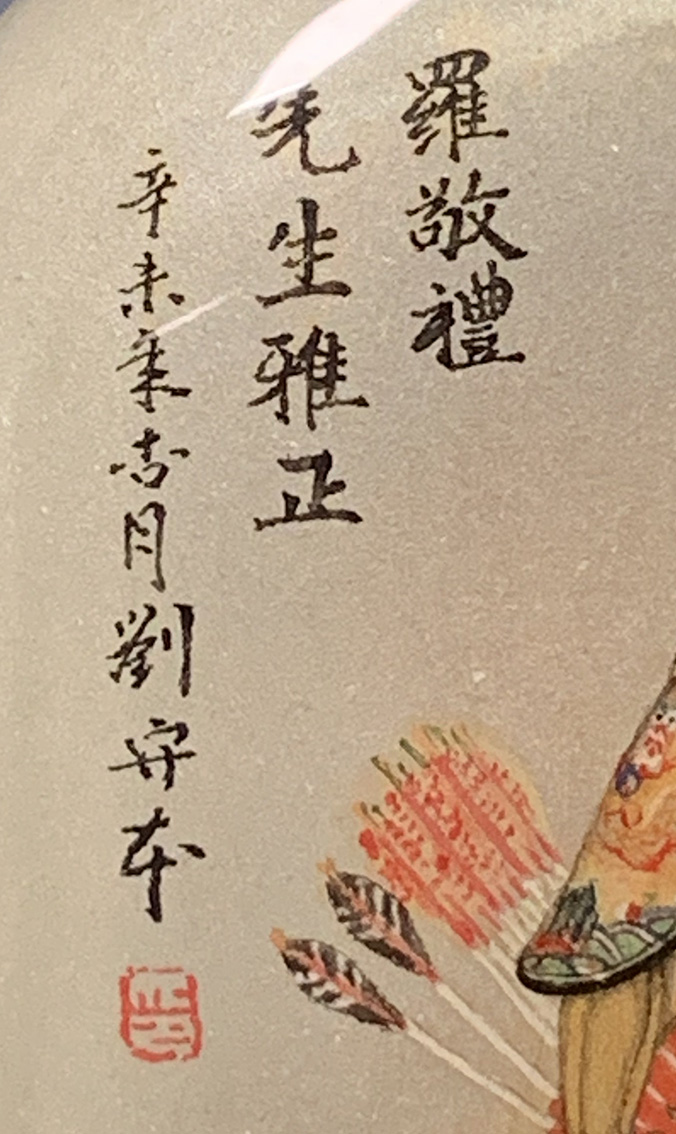 羅敬禮
先生雅正
辛未年杏月劉守本